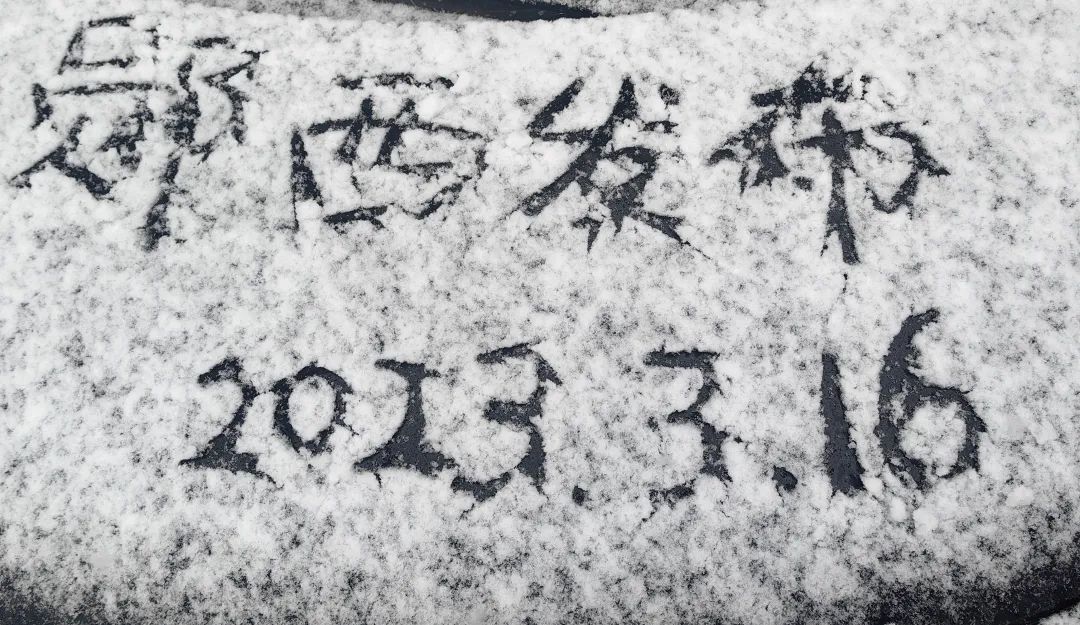 郧西发布
2023.3.16